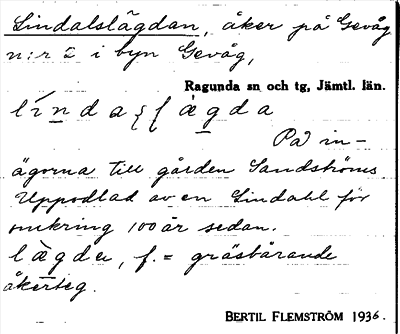 Lindalslägdan, åker på Gevåg
n:r 2 i byn Gevåg,
Ragunda sn och tg, Jämtl. län.
På in-
ägorna till gården Sandströms
Uppodlad av en Lindahl för
omkring 100 år sedan.
lägda, f. = gräsbärande
åkerteg.
BERTIL FLEMSTRÖM 1936.